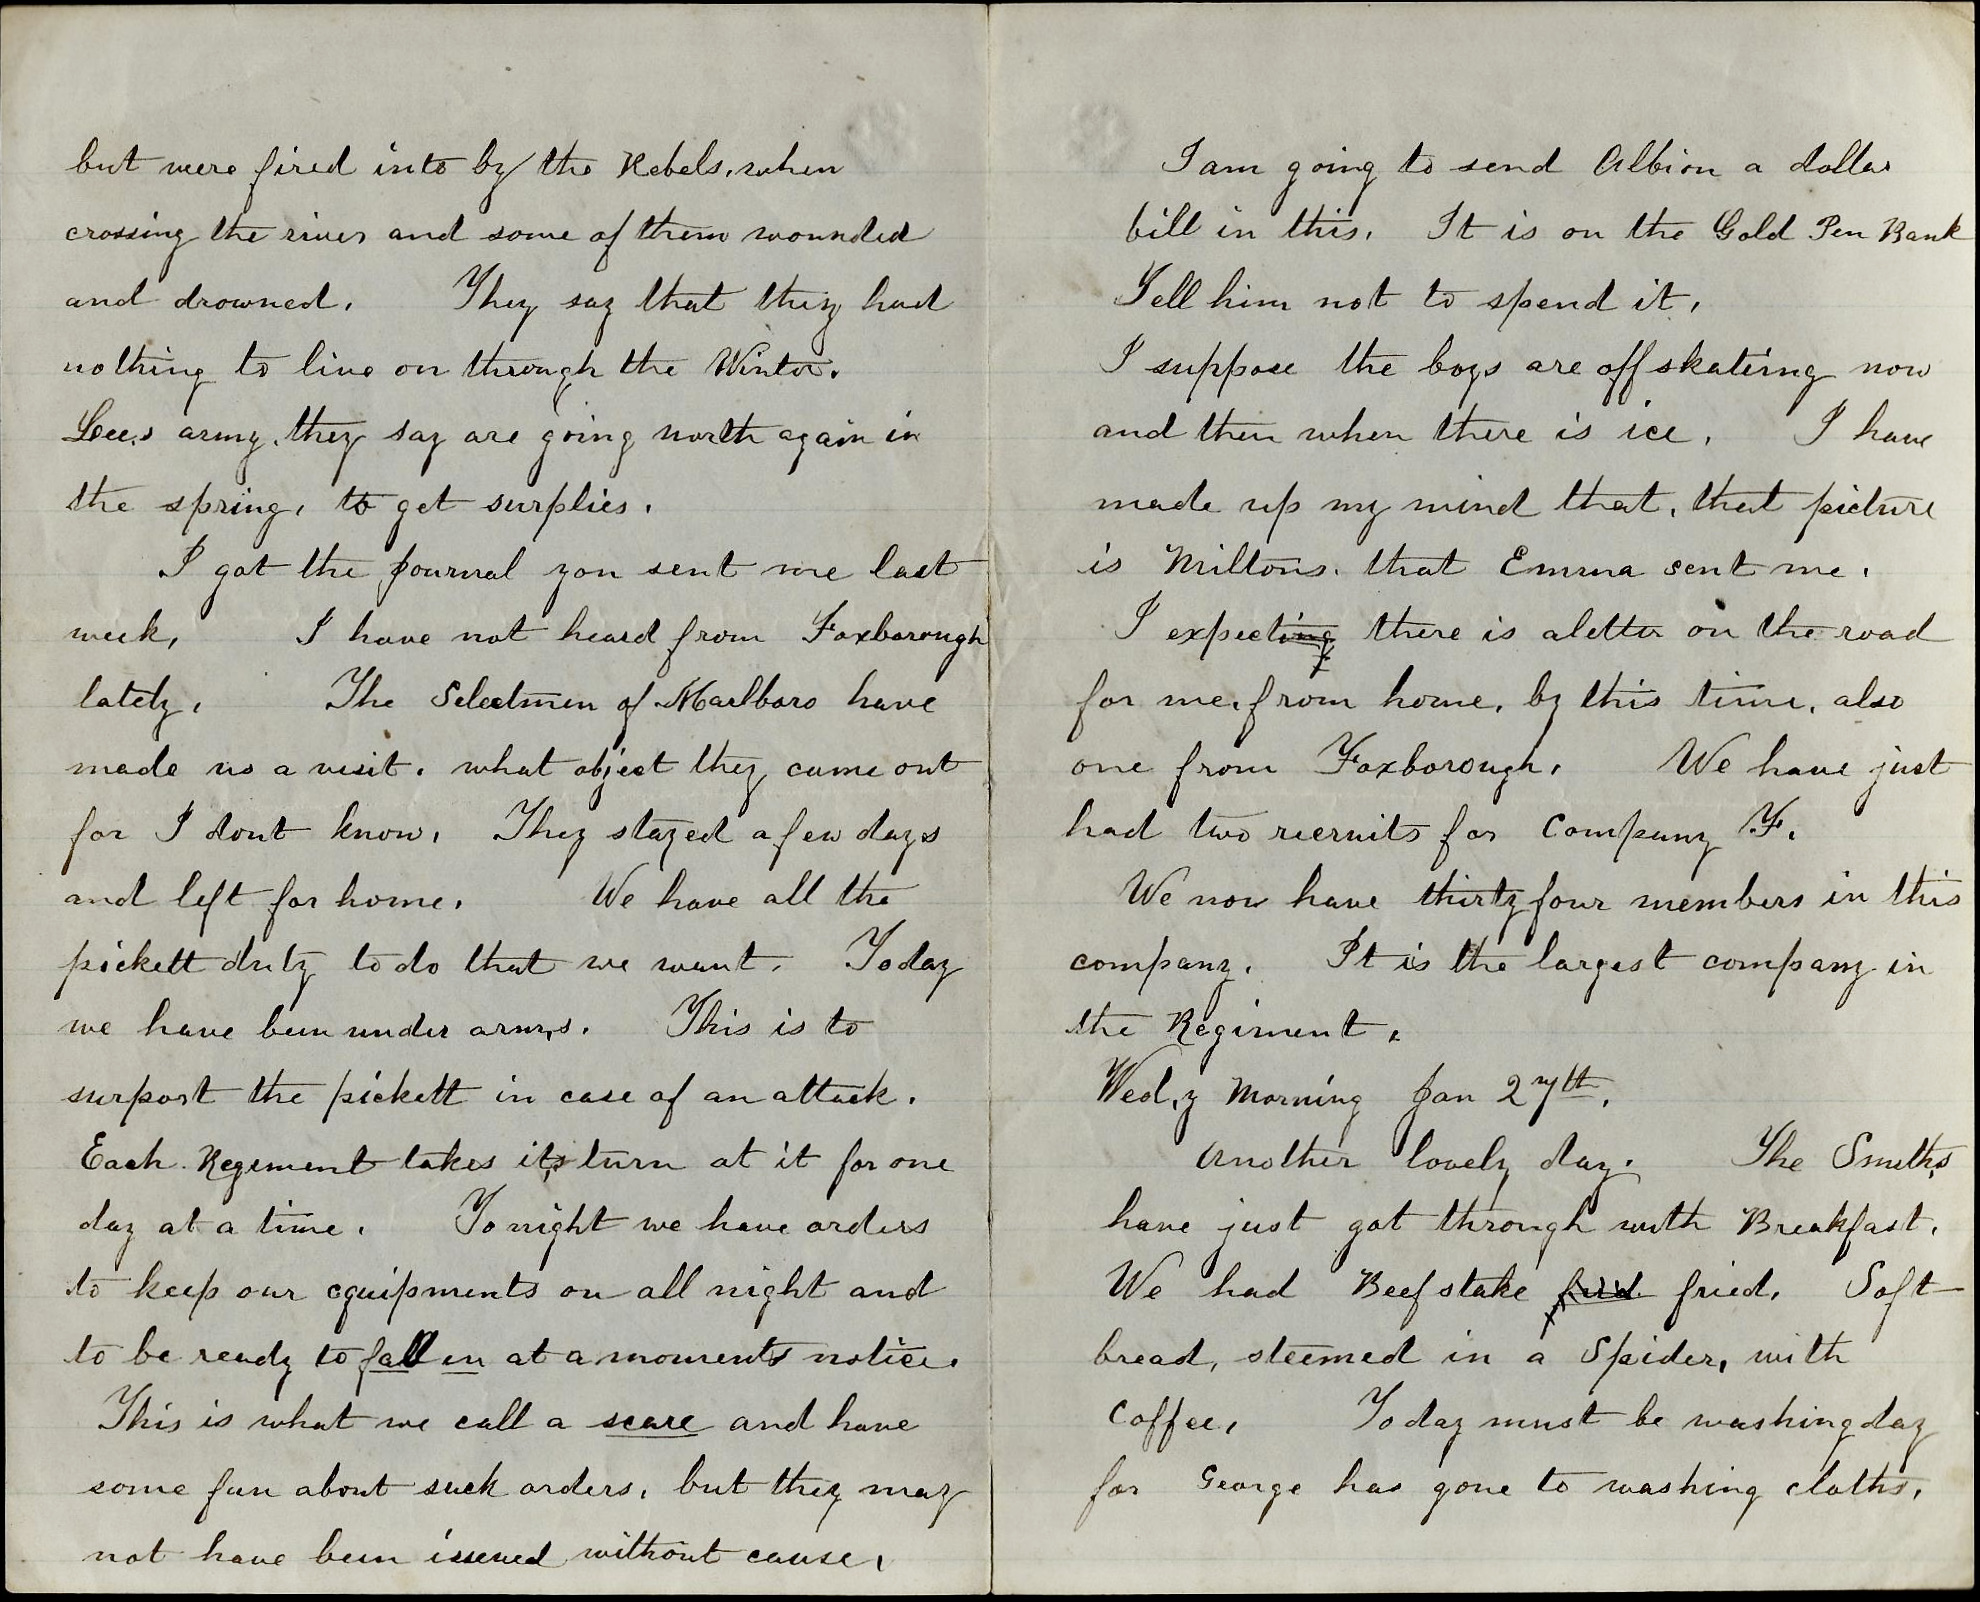 but were fired into by the Rebels, when
crossing the river and some of them wounded
and drowned. They say that they had
nothing to live on through the Winter.
Lee,s army, they say are going north again in
the spring, to get surplies.
I got the Journal you sent me last
week, I have not heard from Foxborough
lately, The Selectmen of Marlboro have
made us a visit. what object they came out
for I dont know, They stayed a few days
and left for home, We have all the
pickett duty to do that we want. Today
we have been under arms. This is to
surport the pickett in case of an attack.
Each Regement takes its turn at it for one
day at a time. To night we have orders
to keep our equipments on all night and
to be ready to fall in at a moments notice.
This is what we call a scare and have
some fun about such orders, but they may
not have been issued without cause,
I am going to send Albion a dollar
bill in this. It is on the Gold Pen Bank
Tell him not to spend it,
I suppose the boys are off skateing now
and then when there is ice. I have
made up my mind that, that picture
is Miltons. that Emma sent me.
I expecting there is a letter on the road
for me, from home, by this time, also
one from Foxborough. We have just
had two recruits for Company F.
We now have thirty four members in this
company. It is the largest company in
the Regiment.
Wed,y Morning Jan 27th.
Another lovely day. The Smiths
have just got through with Breakfast.
We had Beef stake frid fried, Soft
bread, steemed in a Spider, with
Coffee, To day must be washing day
for George has gone to washing cloths,